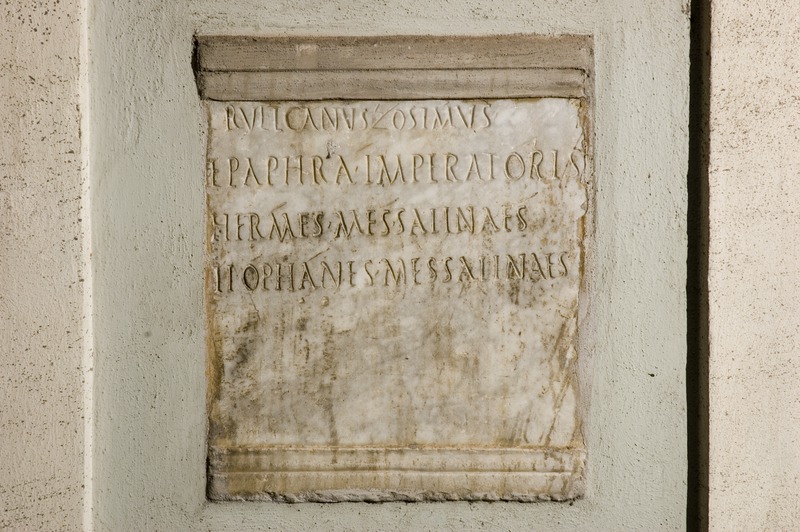 ZOSIMVS
EPAPHRA·IMPERATORIS
HERMES·MESSALINAES
IIOPHANES·MESSALINAES